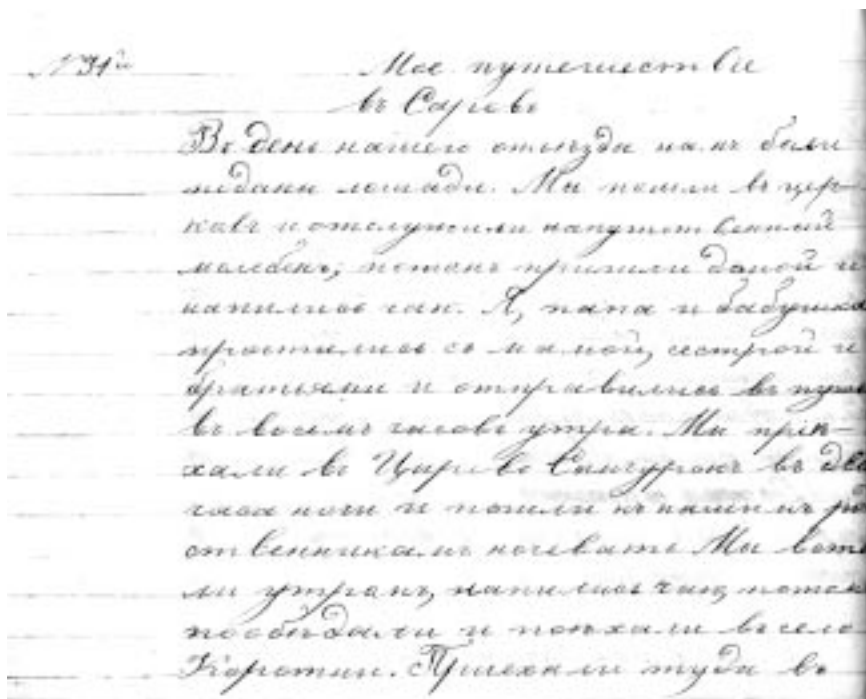 № 31й Мое путешествие
въ Саровъ
Въ день нашего отъѣзда намъ были
поданы лошади. Мы пошли въ цер-
ковь и отслужили напутственный
молебенъ, потомъ пришли домой и
напились чаю. Я, папа и бабушка
простились съ мамой, сестрой и
братьями и отправились въ путь
въ восемь часовъ утра. Мы прiѣ-
хали въ Царево въ два
часа ночи и пошли къ нашимъ род-
ственникамъ ночевать Мы вста-
ли утромъ, напились чаю, потомъ
пообѣдали и поѣхали въ село
Коротни. Приехали туда въ